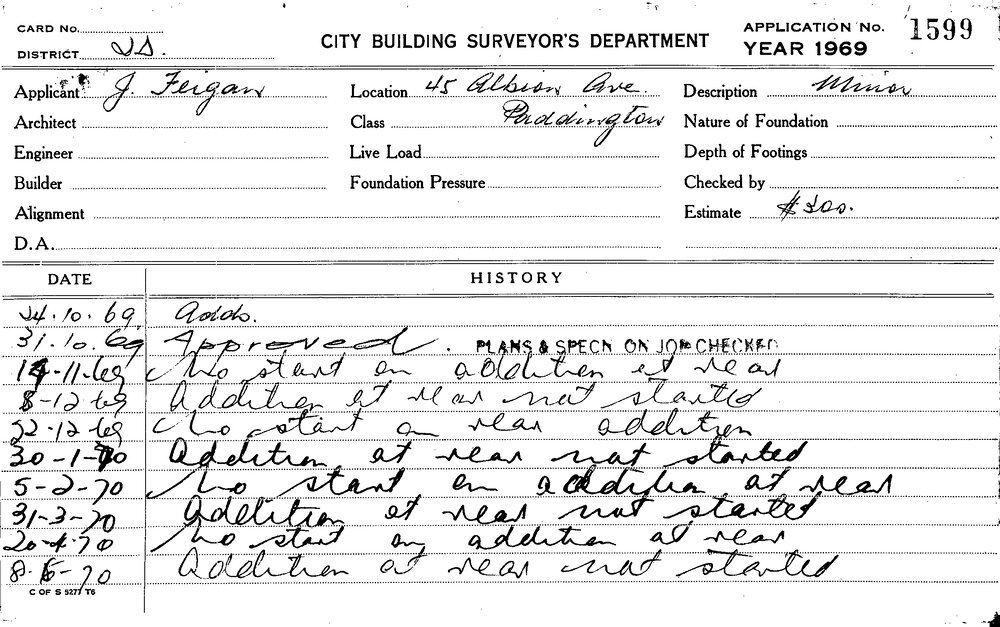 CARD No.
DISTRICT
CITY BUILDING SURVEYOR'S DEPARTMENT
APPLICATION No. 1599
YEAR 1969
Applicant J. Feigan Location 45 Albion Ave. Description Minor
Architect Class Paddington Nature of Foundation
Engineer Live Load Depth of Footings
Builder Foundation Pressure Checked by
Alignment Estimate $300.
D.A.
DATE HISTORY
24.10.69 Adds.
31.10.69 Approved. PLANS & SPECN ON JOB CHECKED
14-11-69 No start on addition at rear
8-12-69 Addition at rear not started
22-12-69 No start on rear addition
30-1-70 Addition at rear not started
5-2-70 No start on addition at rear
31-3-70 Addition at rear not started
20-4-70 No start on addition at rear
8-5-70 Addition at rear not started
C OF S 5277 T6